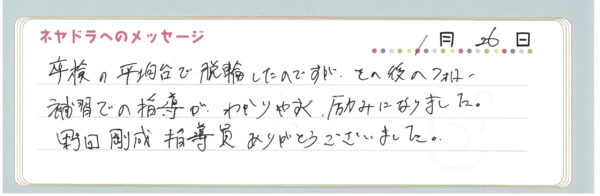 ネヤドラへのメッセージ
1月26日
卒検の平均台で脱輪したのですが、その後のフォロー
補習での指導が、わかりやすく、励みになりました。
野田剛成指導員ありがとうございました。